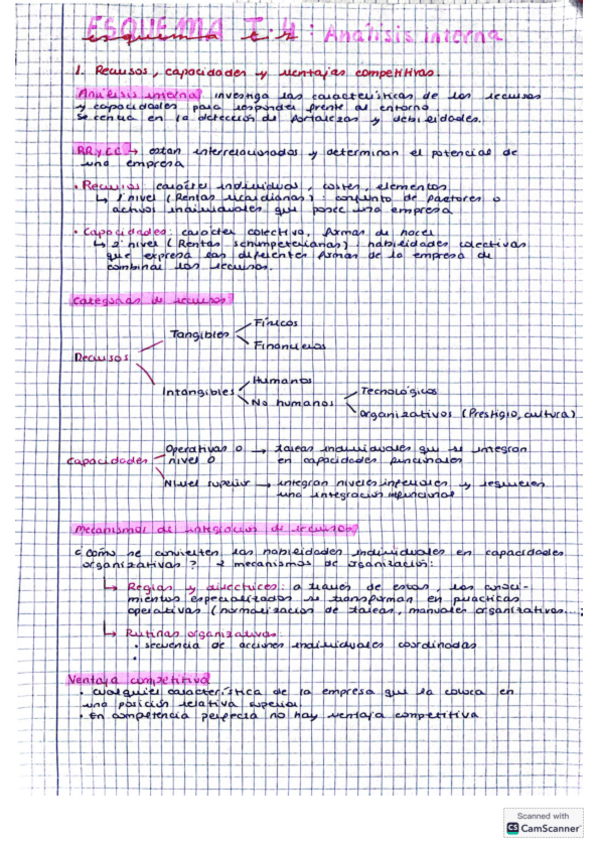 ESQUEMA T.4: Análisis interna
1. Recursos, capacidades y ventajas competitivas.
Análisis interna: investiga las características de los recursos
y capacidades para responder frente al entorno.
Se centra en la detección de fortalezas y debilidades.
RR y CC → están interrelacionados y determinan el potencial de
una empresa
• Recursos: carácter individual, costes, elementos
↳ 1º nivel (Rentas ricardianas): conjunto de factores o
activos individuales que posee una empresa
• Capacidades: carácter colectivo, formas de hacer
↳ 2º nivel (Rentas schumpeterianas): habilidades colectivas
que expresa las diferentes formas de la empresa de
combinar los recursos.
Categorías de recursos
Recursos
Tangibles
Físicos
Financieros
Intangibles
Humanos
No humanos
Tecnológicos
Organizativos (Prestigio, cultura)
Capacidades
Operativas o nivel 0 → tareas individuales que se integran
en capacidades funcionales
Nivel superior → integran niveles inferiores y requieren
una integración
Mecanismos de integración de recursos
¿Cómo se convierten las habilidades individuales en capacidades
organizativas? 2 mecanismos de organización:
↳ Reglas y directrices: a través de estas, los conoci-
mientos especializados se transforman en prácticas
operativas (normalización de tareas, manuales organizativos...)
↳ Rutinas organizativas
• secuencia de acciones individuales coordinadas
•
Ventaja competitiva
• Cualquier característica de la empresa que la coloca en
una posición relativa superior
• En competencia perfecta no hay ventaja competitiva
Scanned with
CS CamScanner